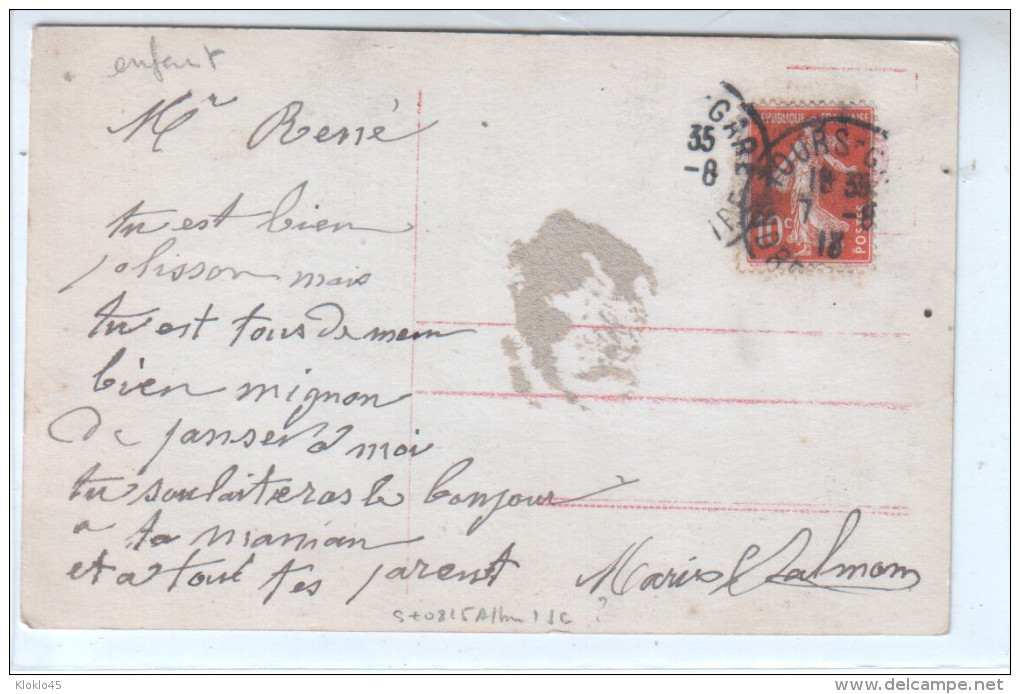 enfant
Mr René
tu est bien
polisson mais
tu est tous de mem
bien mignon
de panser a moi
tu souhaiteras le bonjour
a ta maman
et a tout tes parent
Marius Salmom
35
-8
GARE
RÉPUBLIQUE FRANÇAISE
TOURS-G
18 35
7 -8
18
10c
POSTES
Kloklo45
delcampe.net